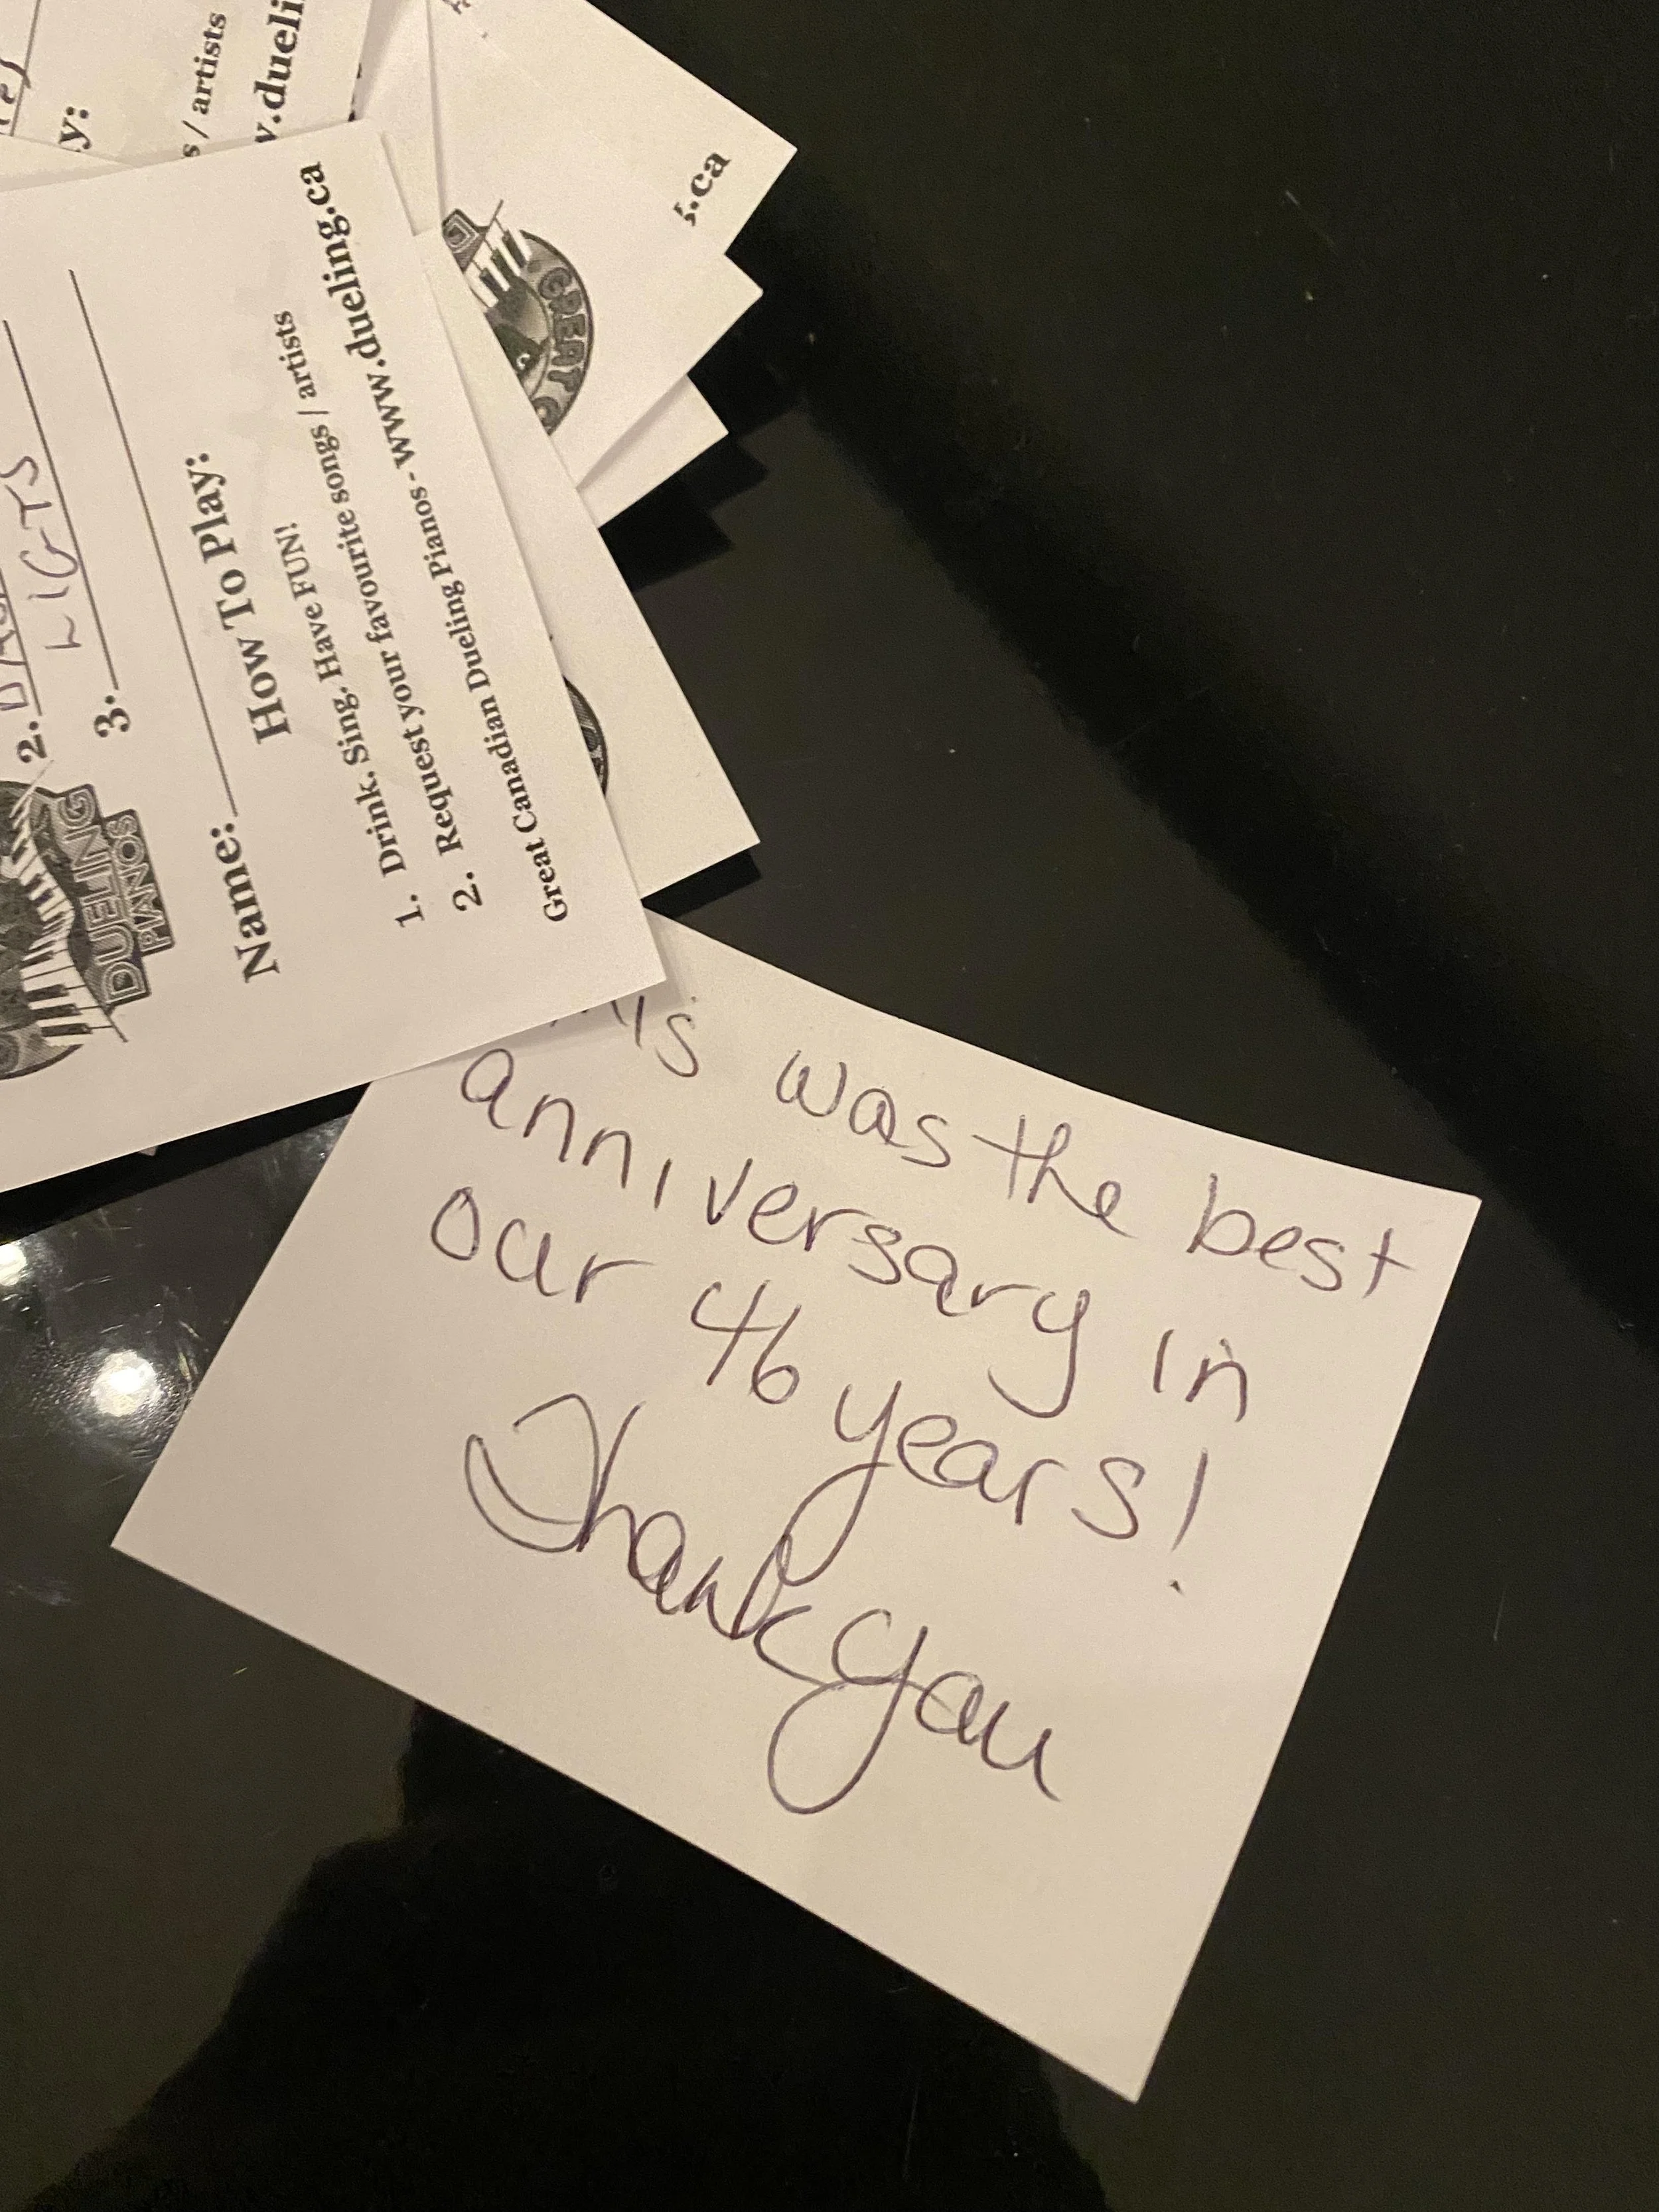 y:
s / artists
w.dueli
s.ca
GREAT
2.
LIGTS
3.
DUELING
PIANOS
Name:
How To Play:
1. Drink. Sing. Have FUN!
2. Request your favourite songs / artists
Great Canadian Dueling Pianos - www.dueling.ca
his was the best
anniversary in
our 46 years!
Thank you